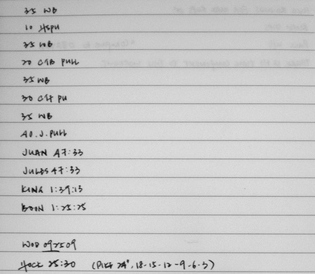 35 WB
10 HSPU
35 WB
20 C2B PULL
35 WB
30 C2F PU
35 WB
40 J. PULL
JUAN 47:33
JULES 47:33
KING 1:39:13
1:25:25
WOD 092509
25:30 (PIKE 24", 18-15-12-9-6-3)